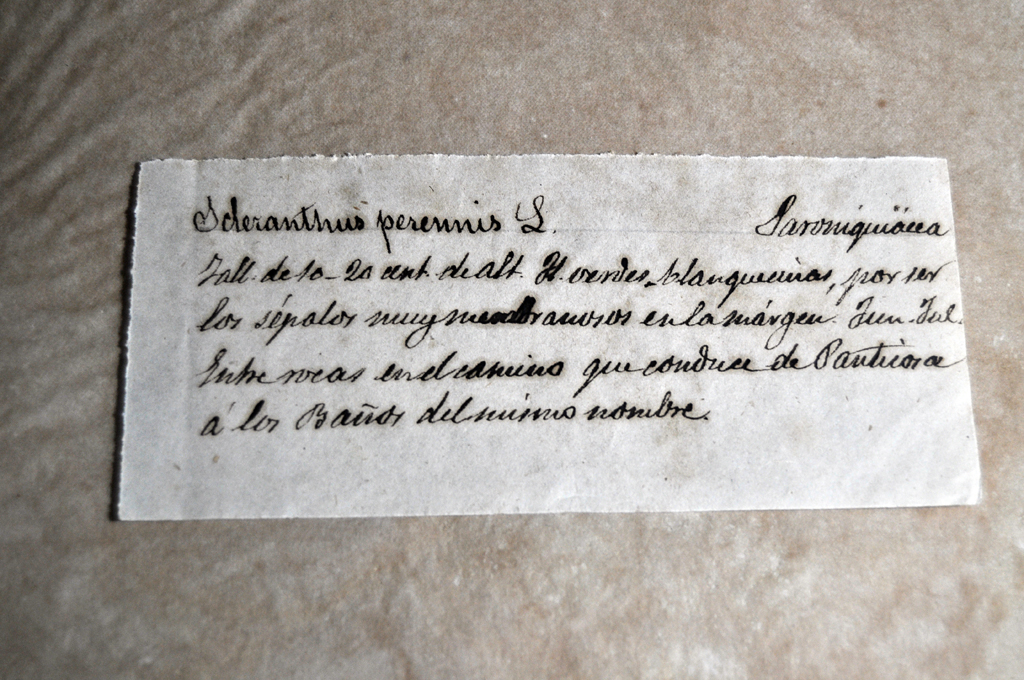 Scleranthus perennis L. Paroniquiácea
Tall. de 10-20 cent. de alt. Fl. verdes-blanquecinas, por ser
los sépalos muy membranosos en la márgen. Jun-Jul.
Entre rocas en el camino que conduce de Panticosa
á los Baños del mismo nombre.